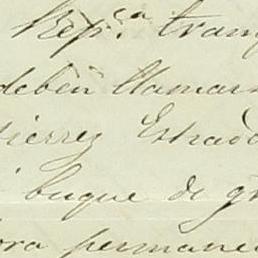 Rep.ca tran
deben llamar
tierrez Estrad
buque de g
ora permane